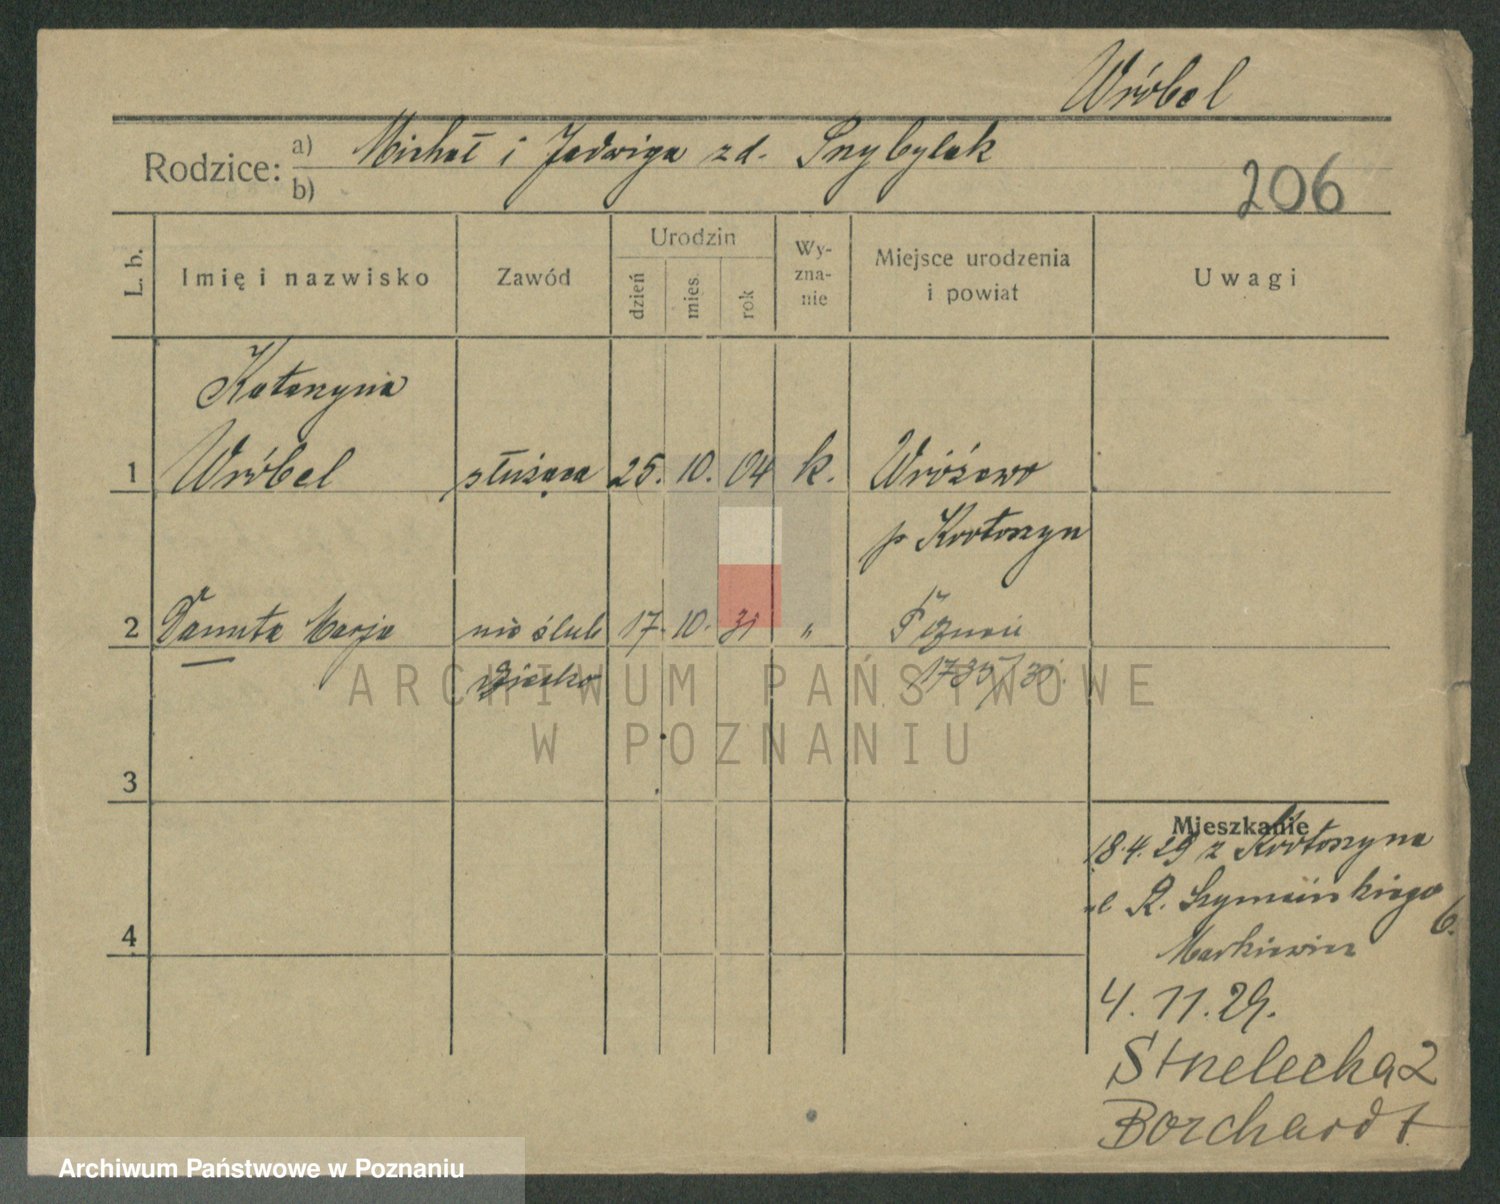 Wróbel
Rodzice: a) Michał i Jadwiga zd. Przybylak
b)
206
L. b.
Imię i nazwisko
Zawód
Urodzin
dzień
mies.
rok
Wy-
zna-
nie
Miejsce urodzenia
i powiat
Uwagi
Katarzyna
1 Wróbel służąca 25. 10. 04 k. Wróżewo
p Krotoszyn
2 Danuta Marja nie ślub 17. 10. 31 " Poznań
dziecko 1735/31.
3
Mieszkanie
18.4.29 z Krotoszyna
ul R. Szymańskiego 6.
4
Markiewicz
4. 11. 29.
Strzelecka 2
Borchardt
ARCHIWUM PAŃSTWOWE
W POZNANIU
Archiwum Państwowe w Poznaniu